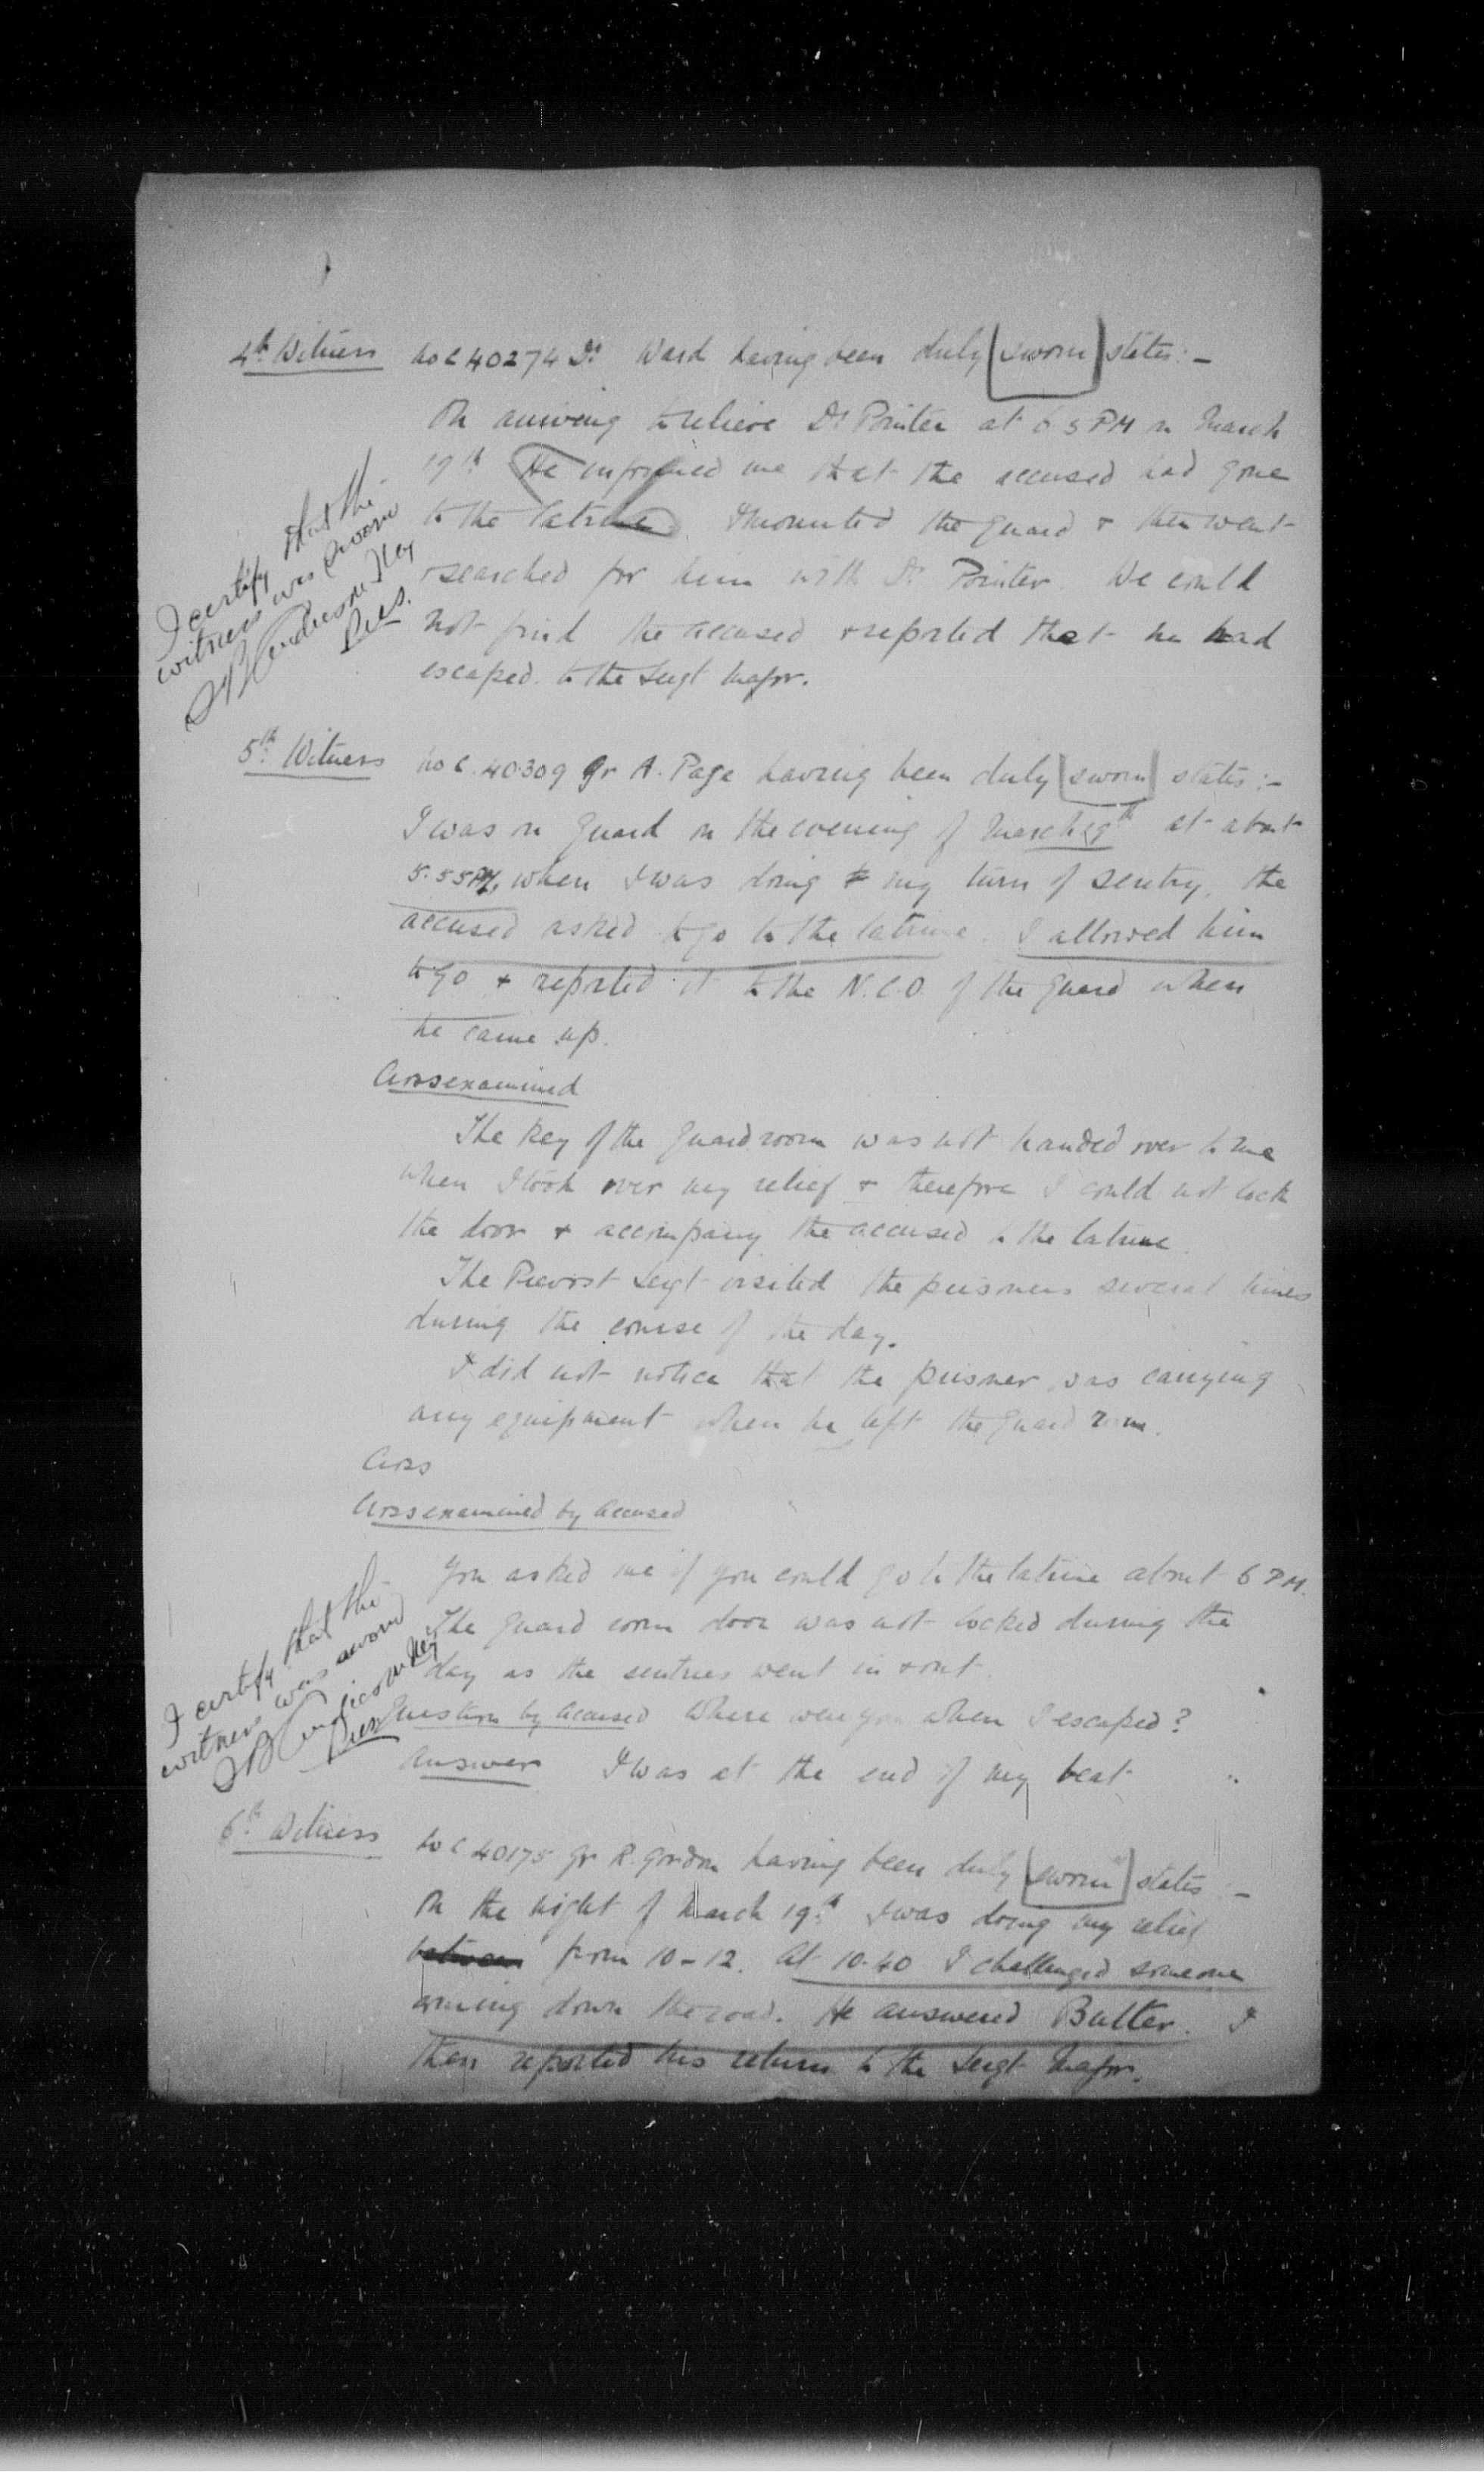 4th Witness No C 40274 Dr Ward having been duly [sworn] states:-
On arriving to relieve Dr Pointer at 6.5 PM on March
19th He informed me that the accused had gone
to the latrine. I mounted the guard + then went
+ searched for him with Dr Pointer. We could
not find the accused + reported that he had
escaped to the Sergt Major.
I certify that this
witness was sworn
Pres.
5th Witness No C. 40309 Gr A. Page having been duly [sworn] states:-
I was on guard on the evening of March 19th at about
5.55 PM, when I was doing my turn of sentry, the
accused asked to go to the latrine. I allowed him
to go + reported it to the N.C.O. of the guard when
he came up.
Crossexamined
The key of the guard room was not handed over to me
when I took over my relief + therefore I could not lock
the door + accompany the accused to the latrine.
The Provost Sergt visited the prisoners several times
during the course of the day.
I did not notice that the prisoner was carrying
any equipment when he left the guard room.
Cross
Crossexamined by accused
You asked me if you could go to the latrine about 6 PM.
The guard room door was not locked during the
day as the sentries went in + out.
Question by accused Where were you when I escaped?
Answer I was at the end of my beat
I certify that this
witness was sworn
Pres
6th Witness No C 40175 Gr R. Gordon having been duly [sworn] states:-
On the night of March 19th I was doing my relief
between from 10-12. At 10.40 I challenged someone
coming down the road. He answered Butler. I
then reported his return to the Sergt Major.